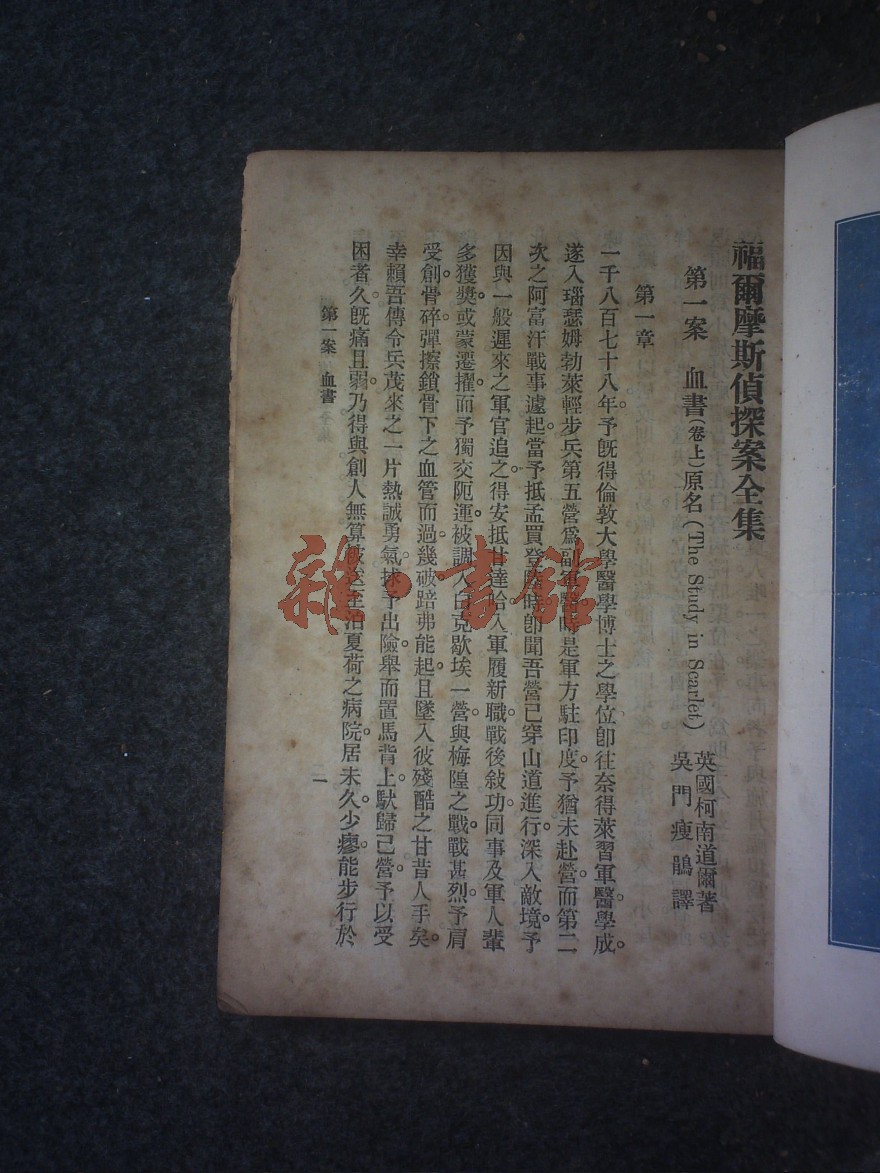 福爾摩斯偵探案全集
第一案 血書(卷上)原名(The Study in Scarlet)
英國柯南道爾著
吳門瘦鵑譯
第一章
一千八百七十八年。予既得倫敦大學醫學博士之學位卽往奈得萊習軍醫學成。
遂入瑙瑟姆勃萊輕步兵第五營爲副軍醫時是軍方駐印度。予猶未赴營。而第二
次之阿富汗戰事遽起。當予抵孟買登陸時卽聞吾營已穿山道進行。深入敵境。予
因與一般遲來之軍官追之。得安抵甘達哈。入軍履新職。戰後敍功。同事及軍人輩
多獲獎。或蒙遷擢。而予獨交阨運。被調入白克歇埃一營。與梅隍之戰。戰甚烈。予肩
受創。骨碎。彈擦鎖骨下之血管而過。幾破。踣弗能起。且墜入彼殘酷之甘昔人手矣。
幸賴吾傳令兵茂來之一片熱誠勇氣。拯予出險。舉而置馬背上。馱歸己營。予以受
困者久。旣痛且弱。乃得與創人無算。夏荷之病院。居未久。少瘳。能步行於
第一案 血書
一
雜书館